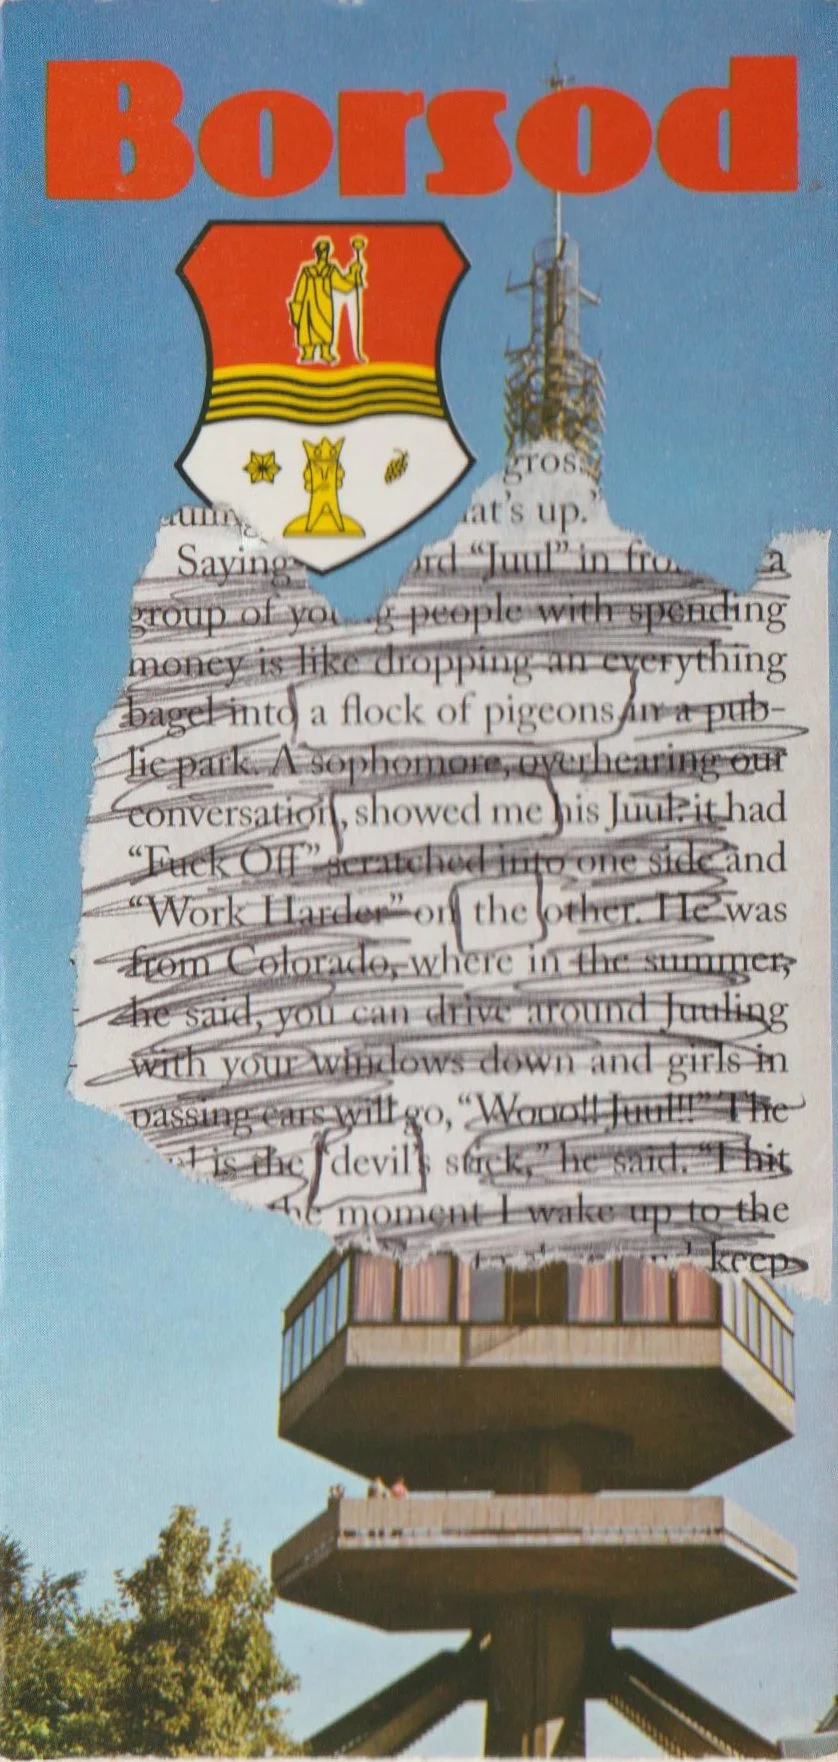 Borsod
gros
at's up.'
Saying "Juul" in a
group of people with spending
money is like dropping an everything
bagel into a flock of pigeons in a pub-
lic park. A sophomore, overhearing our
conversation, showed me his Juul: it had
"Fuck Off" scratched into one side and
"Work Harder" on the other. He was
from Colorado, where in the summer,
he said, you can drive around Juuling
with your windows down and girls in
passing cars will go, "Wooo!! Juul!!" The
is the "devil's stick," he said. "I hit
moment I wake up to the
keep